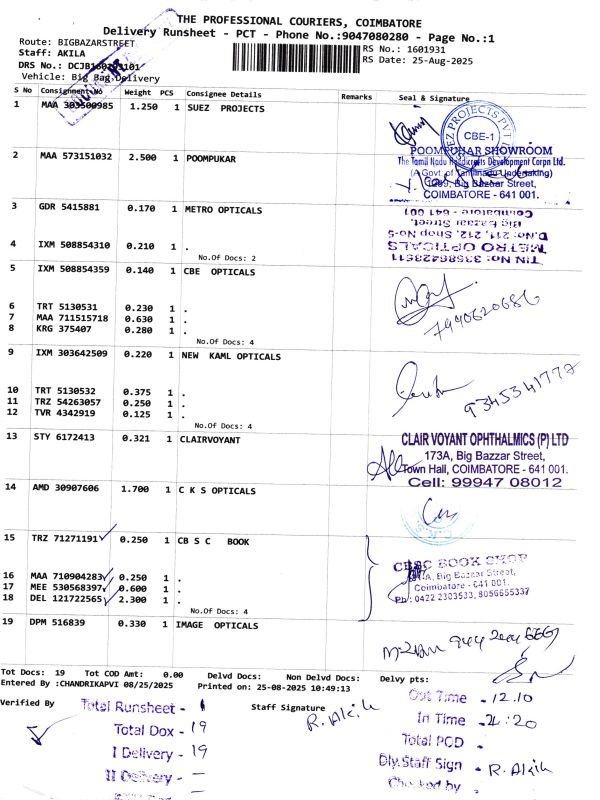 THE PROFESSIONAL COURIERS, COIMBATORE
Delivery Runsheet - PCT - Phone No.:9047080280 - Page No.:1
Route: BIGBAZARSTREET
RS No.: 1601931
Staff: AKILA
RS Date: 25-Aug-2025
DRS No.: DCJB160
Vehicle: Big Bag Delivery
S No Consignment No Weight PCS Consignee Details Remarks Seal & Signature
1 MAA 303500985 1.250 1 SUEZ PROJECTS
CBE-1
2 MAA 573151032 2.500 1 POOMPUKAR
POOMPUHAR SHOWROOM
The Tamil Nadu Handicrafts Development Corpn Ltd.
(A Govt. of Tamilnadu Undertaking)
Big Bazaar Street,
COIMBATORE - 641 001.
3 GDR 5415881 0.170 1 METRO OPTICALS
TIN No: 33586428511
METRO OPTICALS
D.No: 211, 212, Shop No-5
Big Bazaar Street,
Coimbatore - 641 001
4 IXM 508854310 0.210 1 .
No.Of Docs: 2
5 IXM 508854359 0.140 1 CBE OPTICALS
6 TRT 5130531 0.230 1 .
7 MAA 711515718 0.630 1 .
8 KRG 375407 0.280 1 .
7990620686
No.Of Docs: 4
9 IXM 303642509 0.220 1 NEW KAML OPTICALS
10 TRT 5130532 0.375 1 .
11 TRZ 54263057 0.250 1 .
12 TVR 4342919 0.125 1 .
No.Of Docs: 4
13 STY 6172413 0.321 1 CLAIRVOYANT
CLAIR VOYANT OPHTHALMICS (P) LTD
173A, Big Bazzar Street,
Town Hall, COIMBATORE - 641 001.
Cell: 99947 08012
14 AMD 30907606 1.700 1 C K S OPTICALS
15 TRZ 71271191 0.250 1 CB S C BOOK
CBSC BOOK SHOP
Big Bazaar Street,
Coimbatore - 641 001.
Ph : 0422 2303533, 8056655337
16 MAA 710904283 0.250 1 .
17 MEE 530568397 0.600 1 .
18 DEL 121722565 2.300 1 .
No.Of Docs: 4
19 DPM 516839 0.330 1 IMAGE OPTICALS
Tot Docs: 19 Tot COD Amt: 0.00 Delvd Docs: Non Delvd Docs: Delvy pts:
Entered By :CHANDRIKAPVI 08/25/2025 Printed on: 25-08-2025 10:49:13
Verified By
Staff Signature
R. Akila
Total Runsheet - 1
Total Dox - 19
I Delivery - 19
II Delivery - –
Out Time - 12.10
In Time - 2:20
Total POD -
Dly.Staff Sign - R. Akila
Checked by